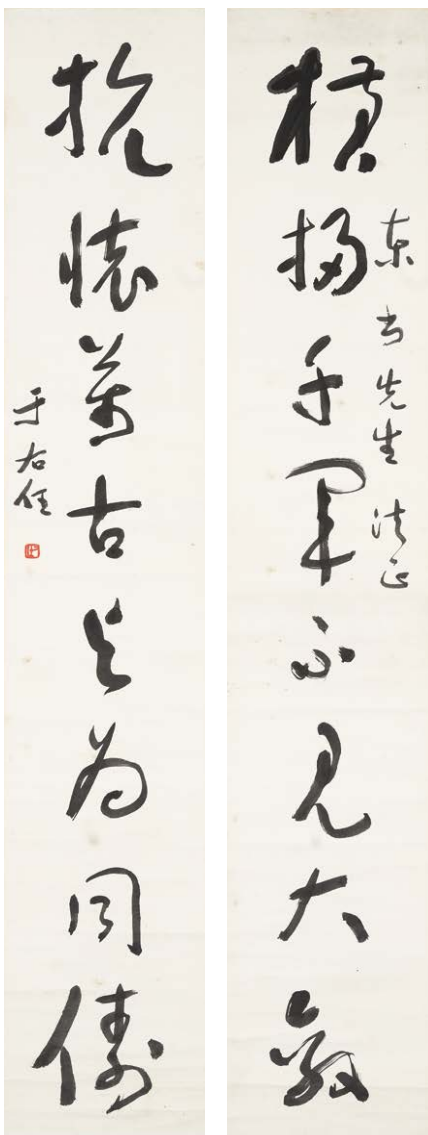 橫掃千軍不見大敵
東書先生 法正
抗懷萬古與為同儔
于右任